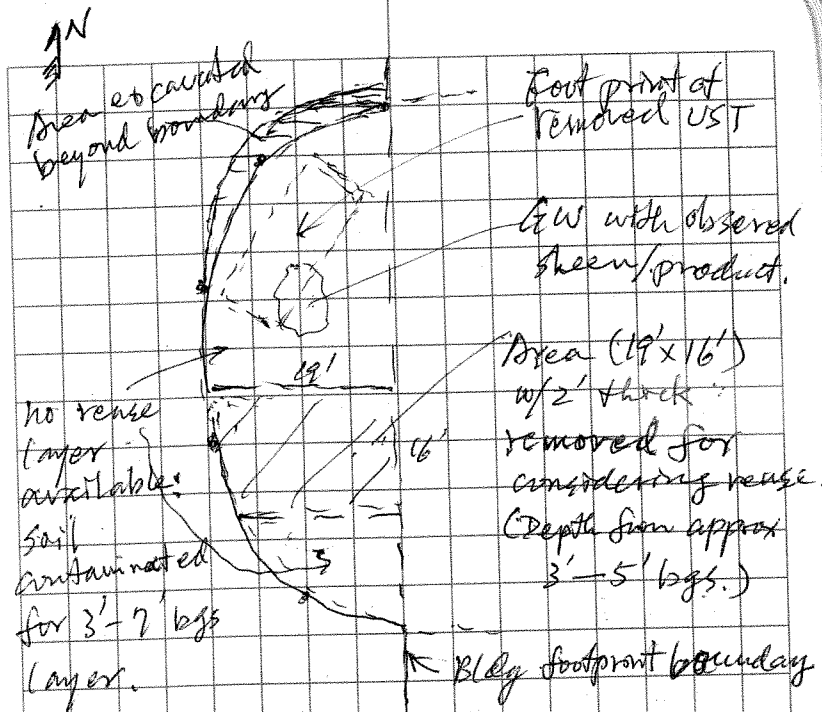 N
Area excavated
beyond boundary
Foot print of
removed UST
GW with observed
sheen/product.
19'
Area (19'x16')
w/2' thick
removed for
considering reuse.
(Depth from approx
3'-5' bgs.)
16'
no reuse
layer
available:
soil
contaminated
for 3'-7' bgs
layer.
Bldg footprint bounday